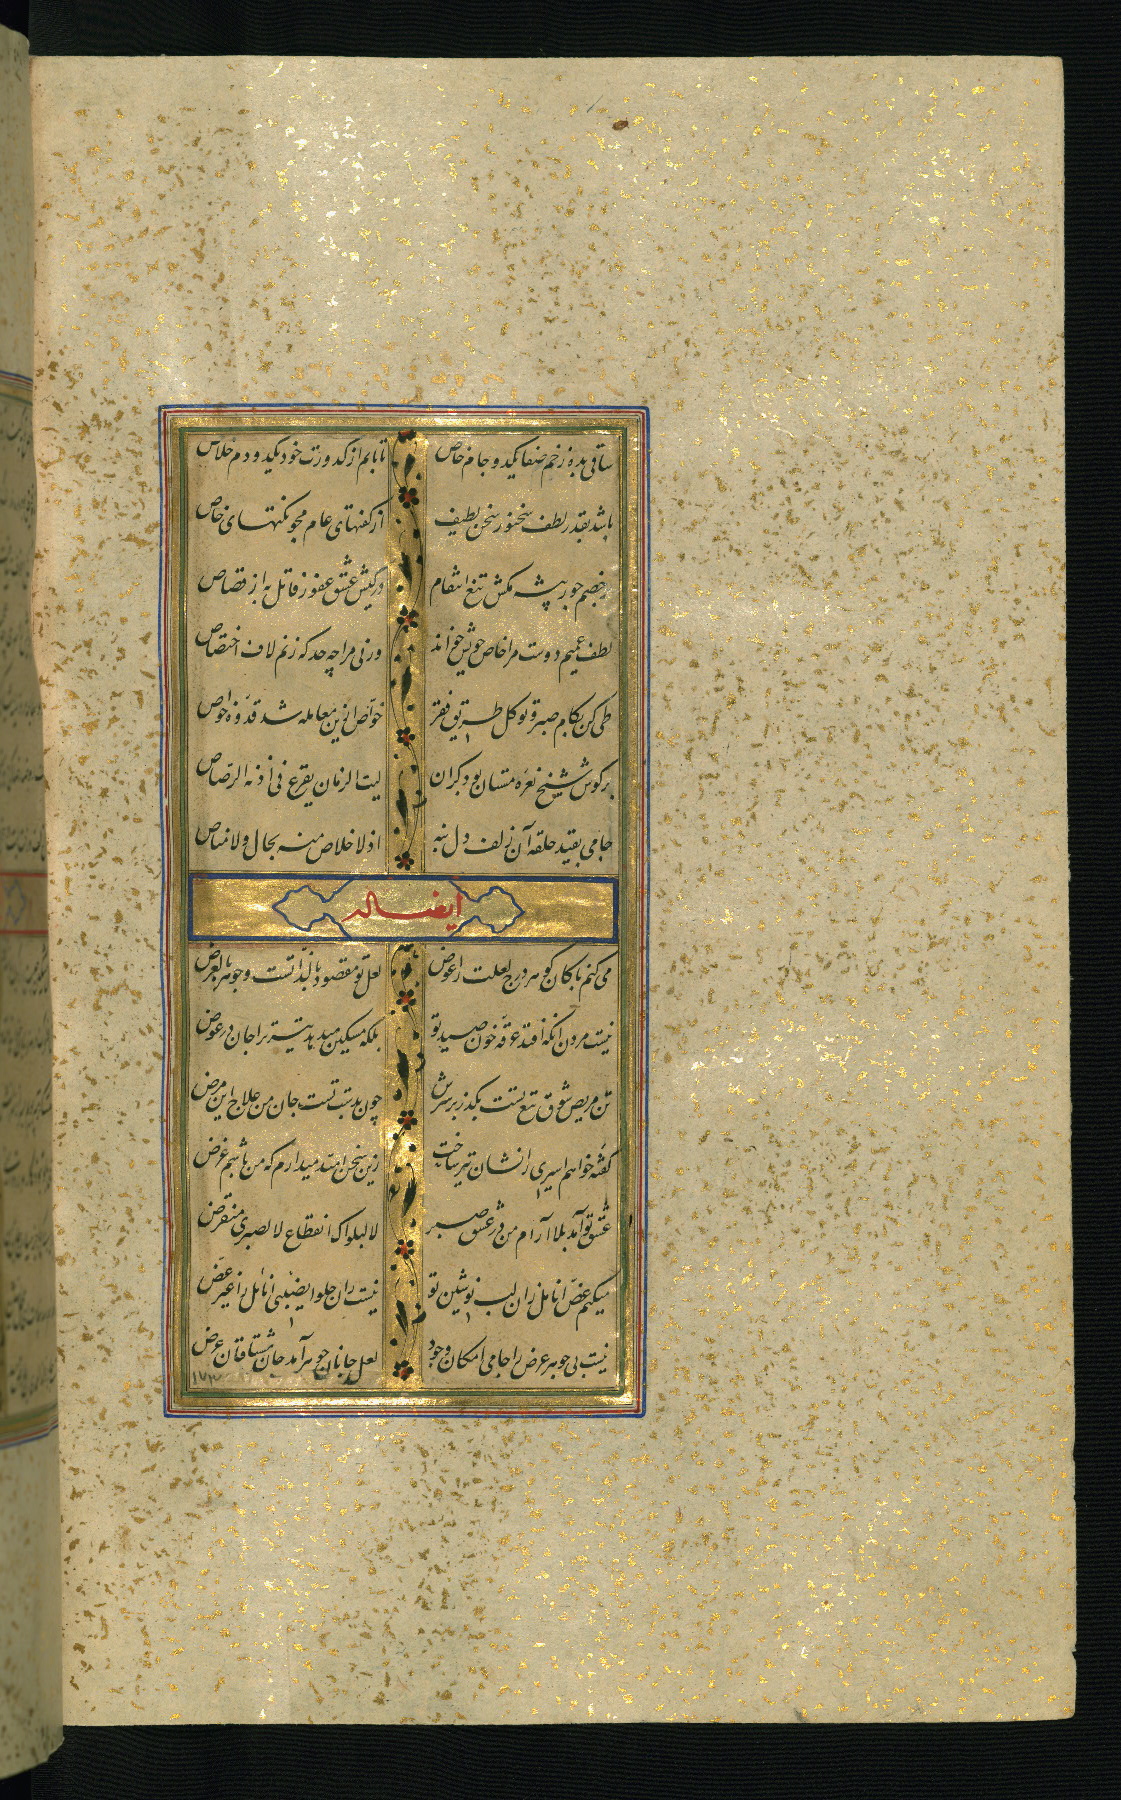 ساقی بده ز خم صفا یکدو جام خاص تا یابم از کدورت خود یکدو دم خلاص
باشد بقدر لطف سخنور سخن لطیف از کفتهای عام مجو نکتهای خاص
بر خصم جور پیشه مکش تیغ انتقام در کیش عشق عفو ز قاتل به از قصاص
لطف عمیم دوست مرا خاص خویش خواند ورنی مرا چه حد که زنم لاف اختصاص
طی کن بکام صبر و توکل طریق فقر خواص ازین معامله شد قدوه خواص
بر کوش شیخ نعره مستان بود کران لیت الزمان یقرع فی اذنه الرصاص
جامی بقید حلقه آن زلف دل بنه اذ لا خلاص منه بحال و لا مناص
ایضا له
می کنم با کان کوهر درج لعلت را عوض لعل تو مقصود بالذاتست و جوهر بالعرض
نیست مردن آنکه افتد غرقه خون صید تو بلکه مسکین میدهد تیر ترا جان در عوض
تن مریض شوق تیغ تست بکذر بر سرش چون بدست تست جان من علاج این مرض
کفته خواهم اسیری را نشان تیر ساخت زین سخن امید میدارم که من باشم غرض
عشق تو آمد بلا آرام من در عشق صبر لا لبلواک انقطاع لا لصبری منقرض
میکنم عض انامل زان لب نوشین تو نیست زان حلوا نصیبی انامل را غیر عض
نیست بی جوهر عرض را جامی امکان وجود لعل جانان جوهر آمد جان مشتاقان عرض